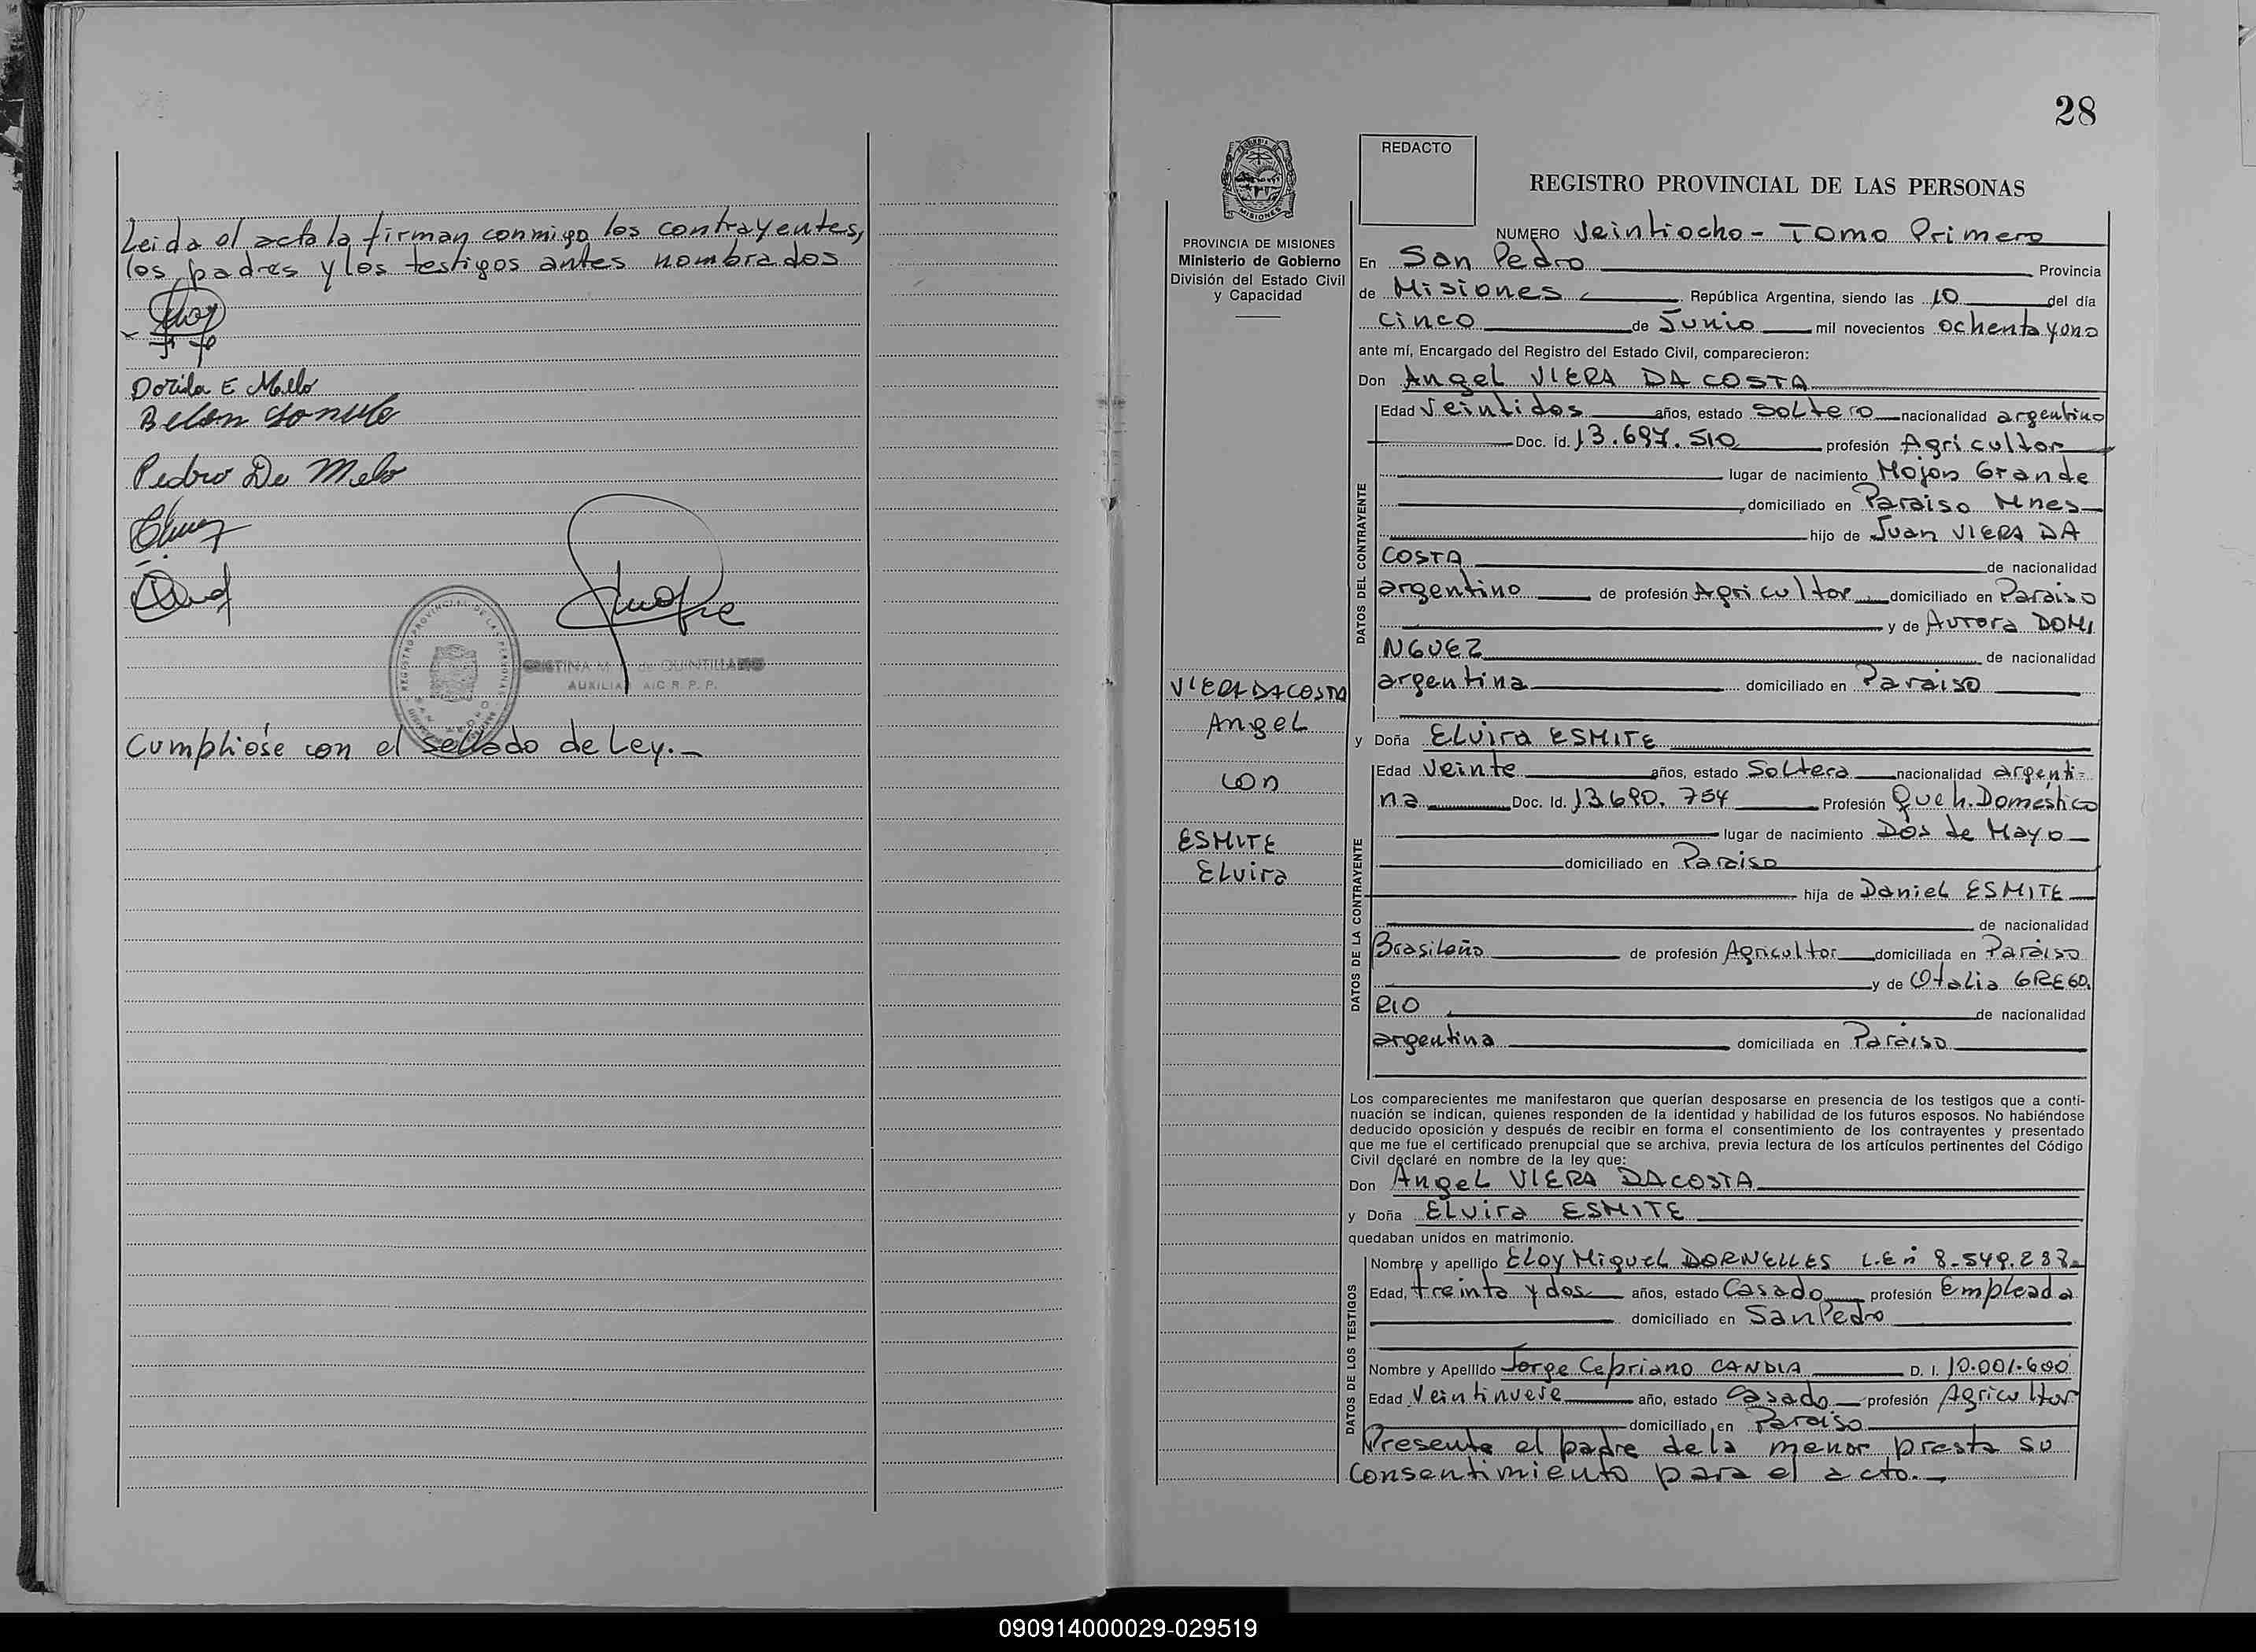 Leida el acta la firman conmigo los contrayentes,
los padres y los testigos antes nombrados
Dorila E Mello
Belen
Pedro De Melo
REGISTRO PROVINCIAL DE LAS PERSONAS
CRISTINA M. de QUINTILLANO
AUXILIAR A/C R. P. P.
Cumplióse con el sellado de Ley.-
28
MISIONES
REDACTO
PROVINCIA DE MISIONES
Ministerio de Gobierno
División del Estado Civil
y Capacidad
VIERA DA COSTA
Angel
con
ESMITE
Elvira
REGISTRO PROVINCIAL DE LAS PERSONAS
NUMERO Veintiocho - Tomo Primero
En San Pedro Provincia
de Misiones República Argentina, siendo las 10 del día
cinco de Junio mil novecientos ochenta y uno
ante mí, Encargado del Registro del Estado Civil, comparecieron:
Don Angel VIERA DA COSTA
DATOS DEL CONTRAYENTE
Edad Veintidos años, estado Soltero nacionalidad argentino
Doc. id. 13.697.510 profesión Agricultor
lugar de nacimiento Mojon Grande
domiciliado en Paraiso Mnes
hijo de Juan VIERA DA
COSTA de nacionalidad
argentino de profesión Agricultor domiciliado en Paraiso
y de Aurora DOMI
NGUEZ de nacionalidad
argentina domiciliado en Paraiso
y Doña Elvira ESMITE
DATOS DE LA CONTRAYENTE
Edad Veinte años, estado Soltera nacionalidad argenti-
na Doc. Id. 13.690.754 Profesión Queh. Domestico
lugar de nacimiento Dos de Mayo
domiciliado en Paraiso
hija de Daniel ESMITE
de nacionalidad
Brasileño de profesión Agricultor domiciliada en Paraiso
y de Otalia GREGO
RIO de nacionalidad
argentina domiciliada en Paraiso
Los comparecientes me manifestaron que querían desposarse en presencia de los testigos que a conti-
nuación se indican, quienes responden de la identidad y habilidad de los futuros esposos. No habiéndose
deducido oposición y después de recibir en forma el consentimiento de los contrayentes y presentado
que me fue el certificado prenupcial que se archiva, previa lectura de los artículos pertinentes del Código
Civil declaré en nombre de la ley que:
Don Angel VIERA DA COSTA
y Doña Elvira ESMITE
quedaban unidos en matrimonio.
DATOS DE LOS TESTIGOS
Nombre y apellido Eloy Miguel DORNELLES L.E nº 8.549.287
Edad, treinta y dos años, estado Casado profesión Empleado
domiciliado en San Pedro
Nombre y Apellido Jorge Cepriano CANDIA D. I. 10.001.600
Edad Veintinueve año, estado Casado profesión Agricultor
domiciliado en Paraiso
Presente el padre de la menor presta su
Consentimiento para el acto.-
090914000029-029519